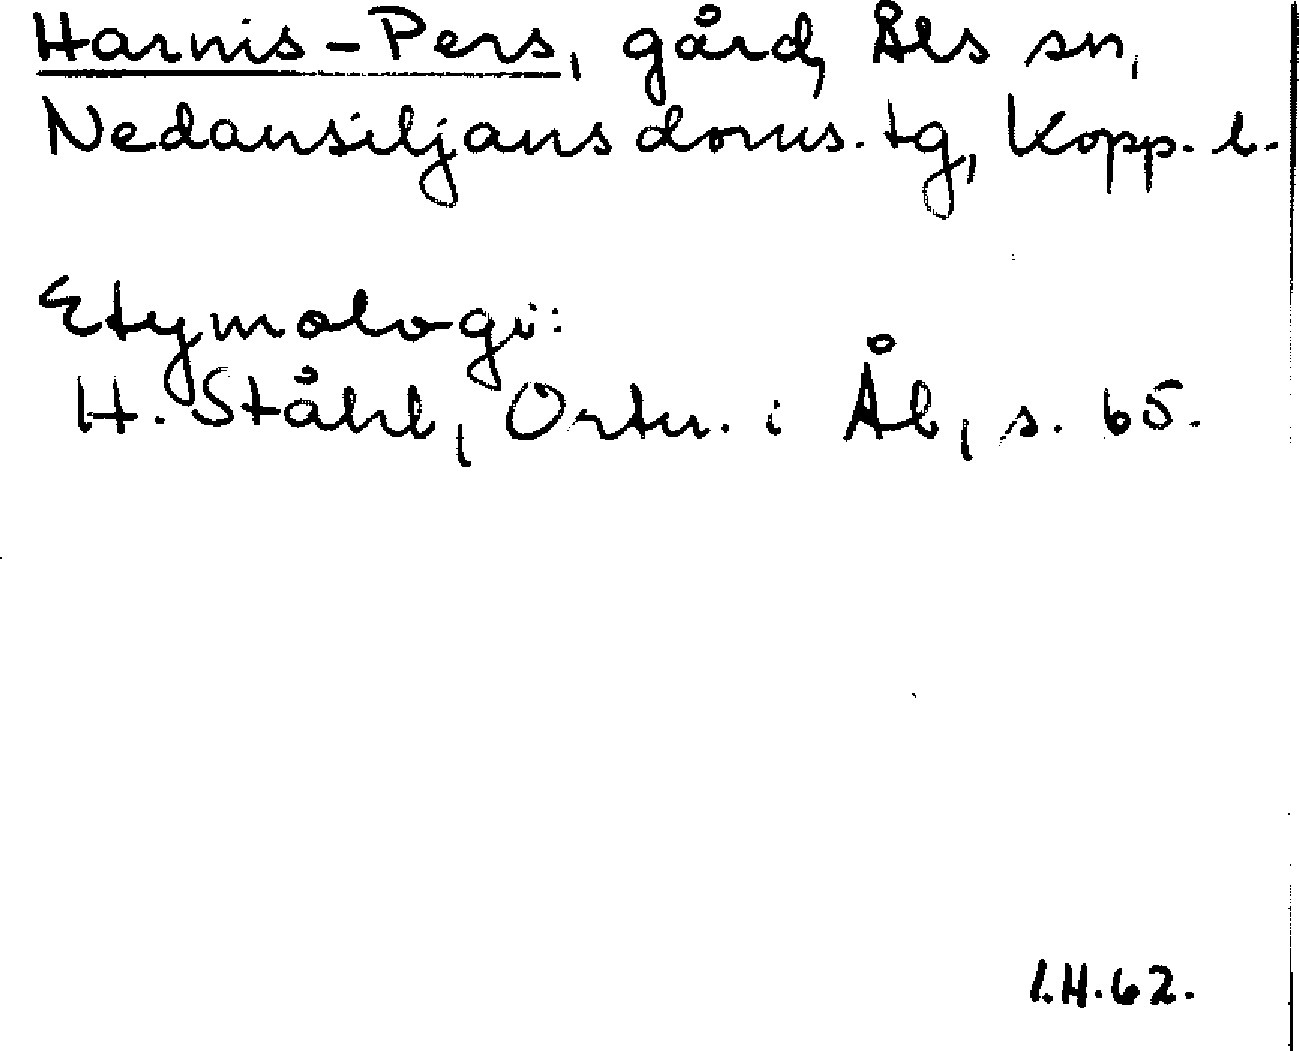 Harnis-Pers, gård, Åls sn,
Nedansiljans doms. tg, Kopp. l.
Etymologi:
H. Ståhl, Ortn. i Ål, s. 65.
I.H.62.